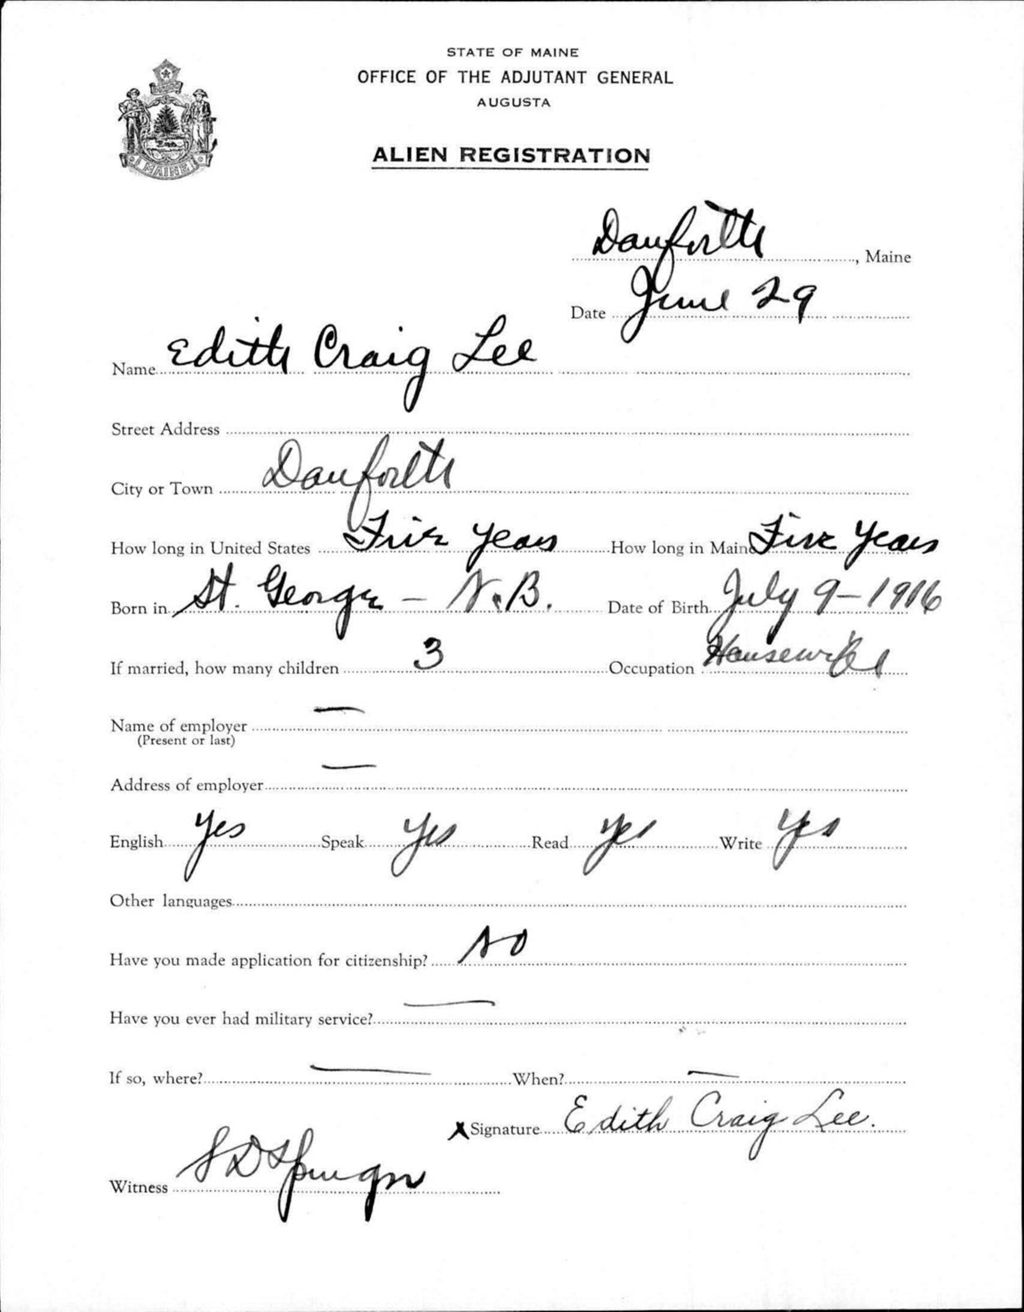 STATE OF MAINE
OFFICE OF THE ADJUTANT GENERAL
AUGUSTA
ALIEN REGISTRATION
MAINE
Danforth, Maine
Date June 29
Name Edith Craig Lee
Street Address
City or Town Danforth
How long in United States Five years How long in Maine Five Years
Born in St. George - N.B. Date of Birth July 9-1916
If married, how many children 3 Occupation Housewife
Name of employer —
(Present or last)
Address of employer —
English Yes Speak Yes Read Yes Write Yes
Other languages
Have you made application for citizenship? No
Have you ever had military service? —
If so, where? — When? —
X Signature Edith Craig Lee.
Witness